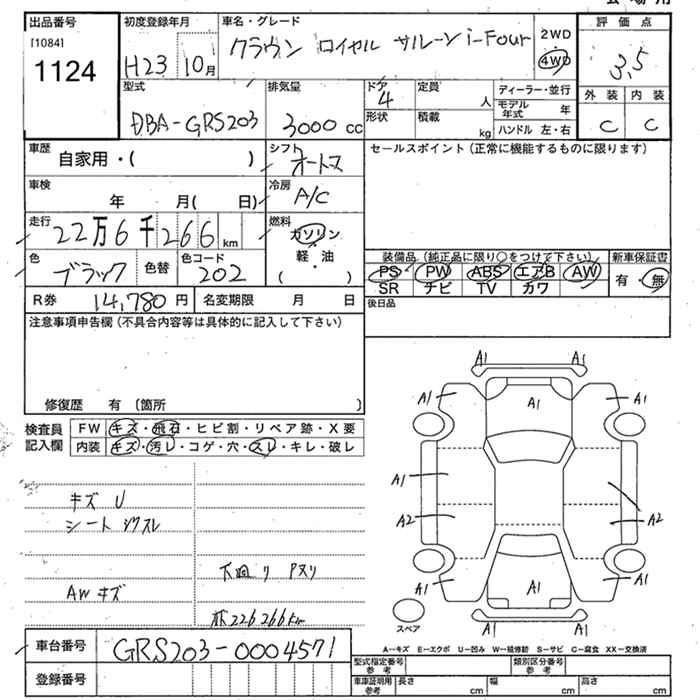 出品番号
[1084]
1124
初度登録年月
H23 10月
車名・グレード
クラウン ロイヤル サルーン i-Four
2WD
4WD
評価点
3,5
外装 内装
C C
型式
DBA-GRS203
排気量
3000 cc
ドア
4
形状
定員
人
積載
kg
ディーラー・並行
モデル年式 年
ハンドル 左・右
車歴
自家用・( )
シフト
オートマ
セールスポイント(正常に機能するものに限ります)
車検
年 月( 日)
冷房
A/C
走行
22万6千266 km
燃料
ガソリン
軽・油
( )
色
ブラック
色替
色コード
202
装備品 (純正品に限り○をつけて下さい)
PS PW ABS エアB AW
SR ナビ TV カワ
新車保証書
有・無
R券 14,780 円
名変期限 月 日
後日品
注意事項申告欄(不具合内容等は具体的に記入して下さい)
修復歴 有 (箇所 )
検査員記入欄
FW キズ・飛石・ヒビ割・リペア跡・X要
内装 キズ・汚レ・コゲ・穴・スレ・キレ・破レ
キズ U
シート シワスレ
下廻り Pヌリ
AW キズ
226266km
A1 A1
A1 A1 A1
A1
A2 A2
A1 A1 A1
A1 A1
スペア
A--キズ E--エクボ U--凹み W--補修跡 S--サビ C--腐食 XX--交換済
車台番号
GRS203-0004571
登録番号
型式指定番号 参考
類別区分番号 参考
車車証明用 参考
長さ cm
幅 cm
高さ cm